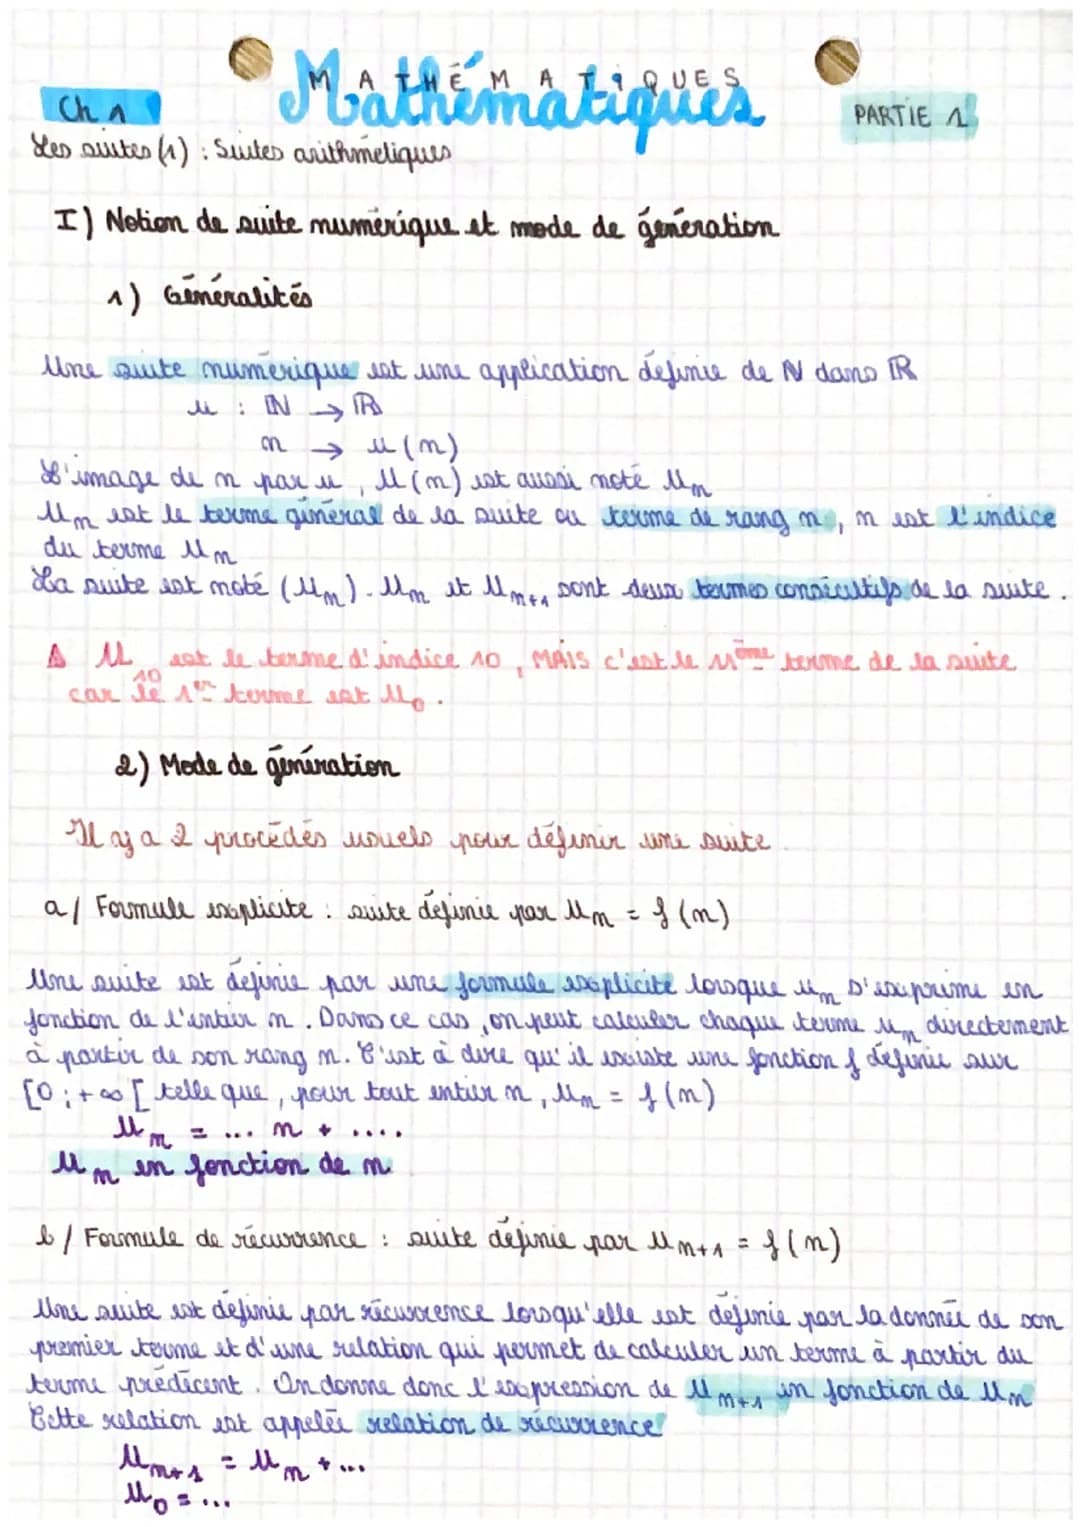 Mathématiques
MATHÉMATIQUES
Ch 1
PARTIE 1
Les suites (1) : Suites arithmétiques
I) Notion de suite numérique et mode de génération
1) Généralités
Une suite numérique est une application définie de N dans ℝ
u : ℕ → ℝ
n → u(n)
L'image de n par u, U(n) est aussi noté Un
Un est le terme général de la suite ou terme de rang n, n est l'indice
du terme Un
La suite est noté (Un). Un et Un+1 sont deux termes consécutifs de la suite.
⚠ U10 est le terme d'indice 10, MAIS c'est le 11ème terme de la suite
car le 1er terme est U0.
2) Mode de génération
Il y a 2 procédés usuels pour définir une suite.
a/ Formule explicite : suite définie par Un = f(n)
Une suite est définie par une formule explicite lorsque un s'exprime en
fonction de l'entier n. Dans ce cas, on peut calculer chaque terme un directement
à partir de son rang n. C'est à dire qu'il existe une fonction f définie sur
[0;+∞[ telle que, pour tout entier n, Un = f(n)
Un = ... n + ....
Un en fonction de n
b/ Formule de récurrence : suite définie par Un+1 = f(n)
Une suite est définie par récurrence lorsqu'elle est définie par la donnée de son
premier terme et d'une relation qui permet de calculer un terme à partir du
terme précédent. On donne donc l'expression de Un+1 en fonction de Un
Cette relation est appelée relation de récurrence
Un+1 = Un + ...
U0 = ...